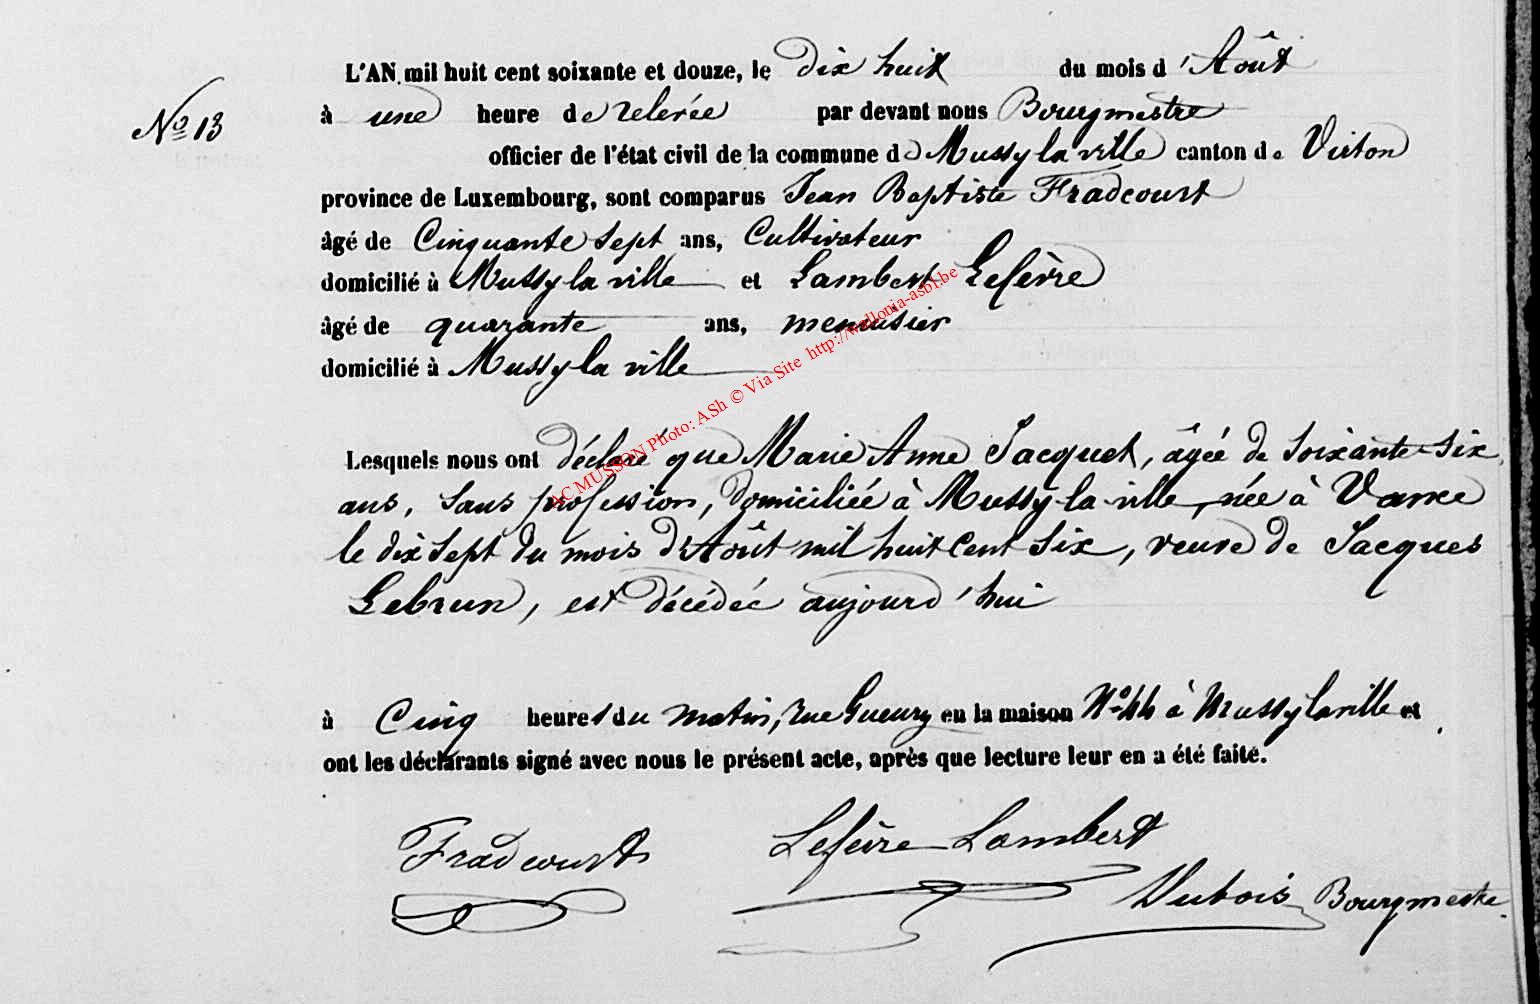 L'AN mil huit cent soixante et douze, le dix huit du mois d'Août
No 13
à une heure de relevée par devant nous Bourgmestre
officier de l'état civil de la commune de Mussy la ville canton de Virton
province de Luxembourg, sont comparus Jean Baptiste Fradcourt
âgé de Cinquante Sept ans, Cultivateur
domicilié à Mussy la ville et Lambert Lefèvre
âgé de quarante ans, menuisier
domicilié à Mussy la ville
AC MUSSON Photo: ASh © Via Site http://wallonia-asbl.be
Lesquels nous ont déclaré que Marie Anne Jacquet, âgée de Soixante-Six
ans, Sans profession, domiciliée à Mussy-la-ville, née à Vance
le dix Sept du mois d'Août mil huit Cent Six, veuve de Jacques
Lebrun, est décédée aujourd'hui
à Cinq heures du matin, rue Gueury en la maison No 44 à Mussy la ville et
ont les déclarants signé avec nous le présent acte, après que lecture leur en a été faite.
Fradcourt Lefèvre Lambert
Dubois Bourgmestre